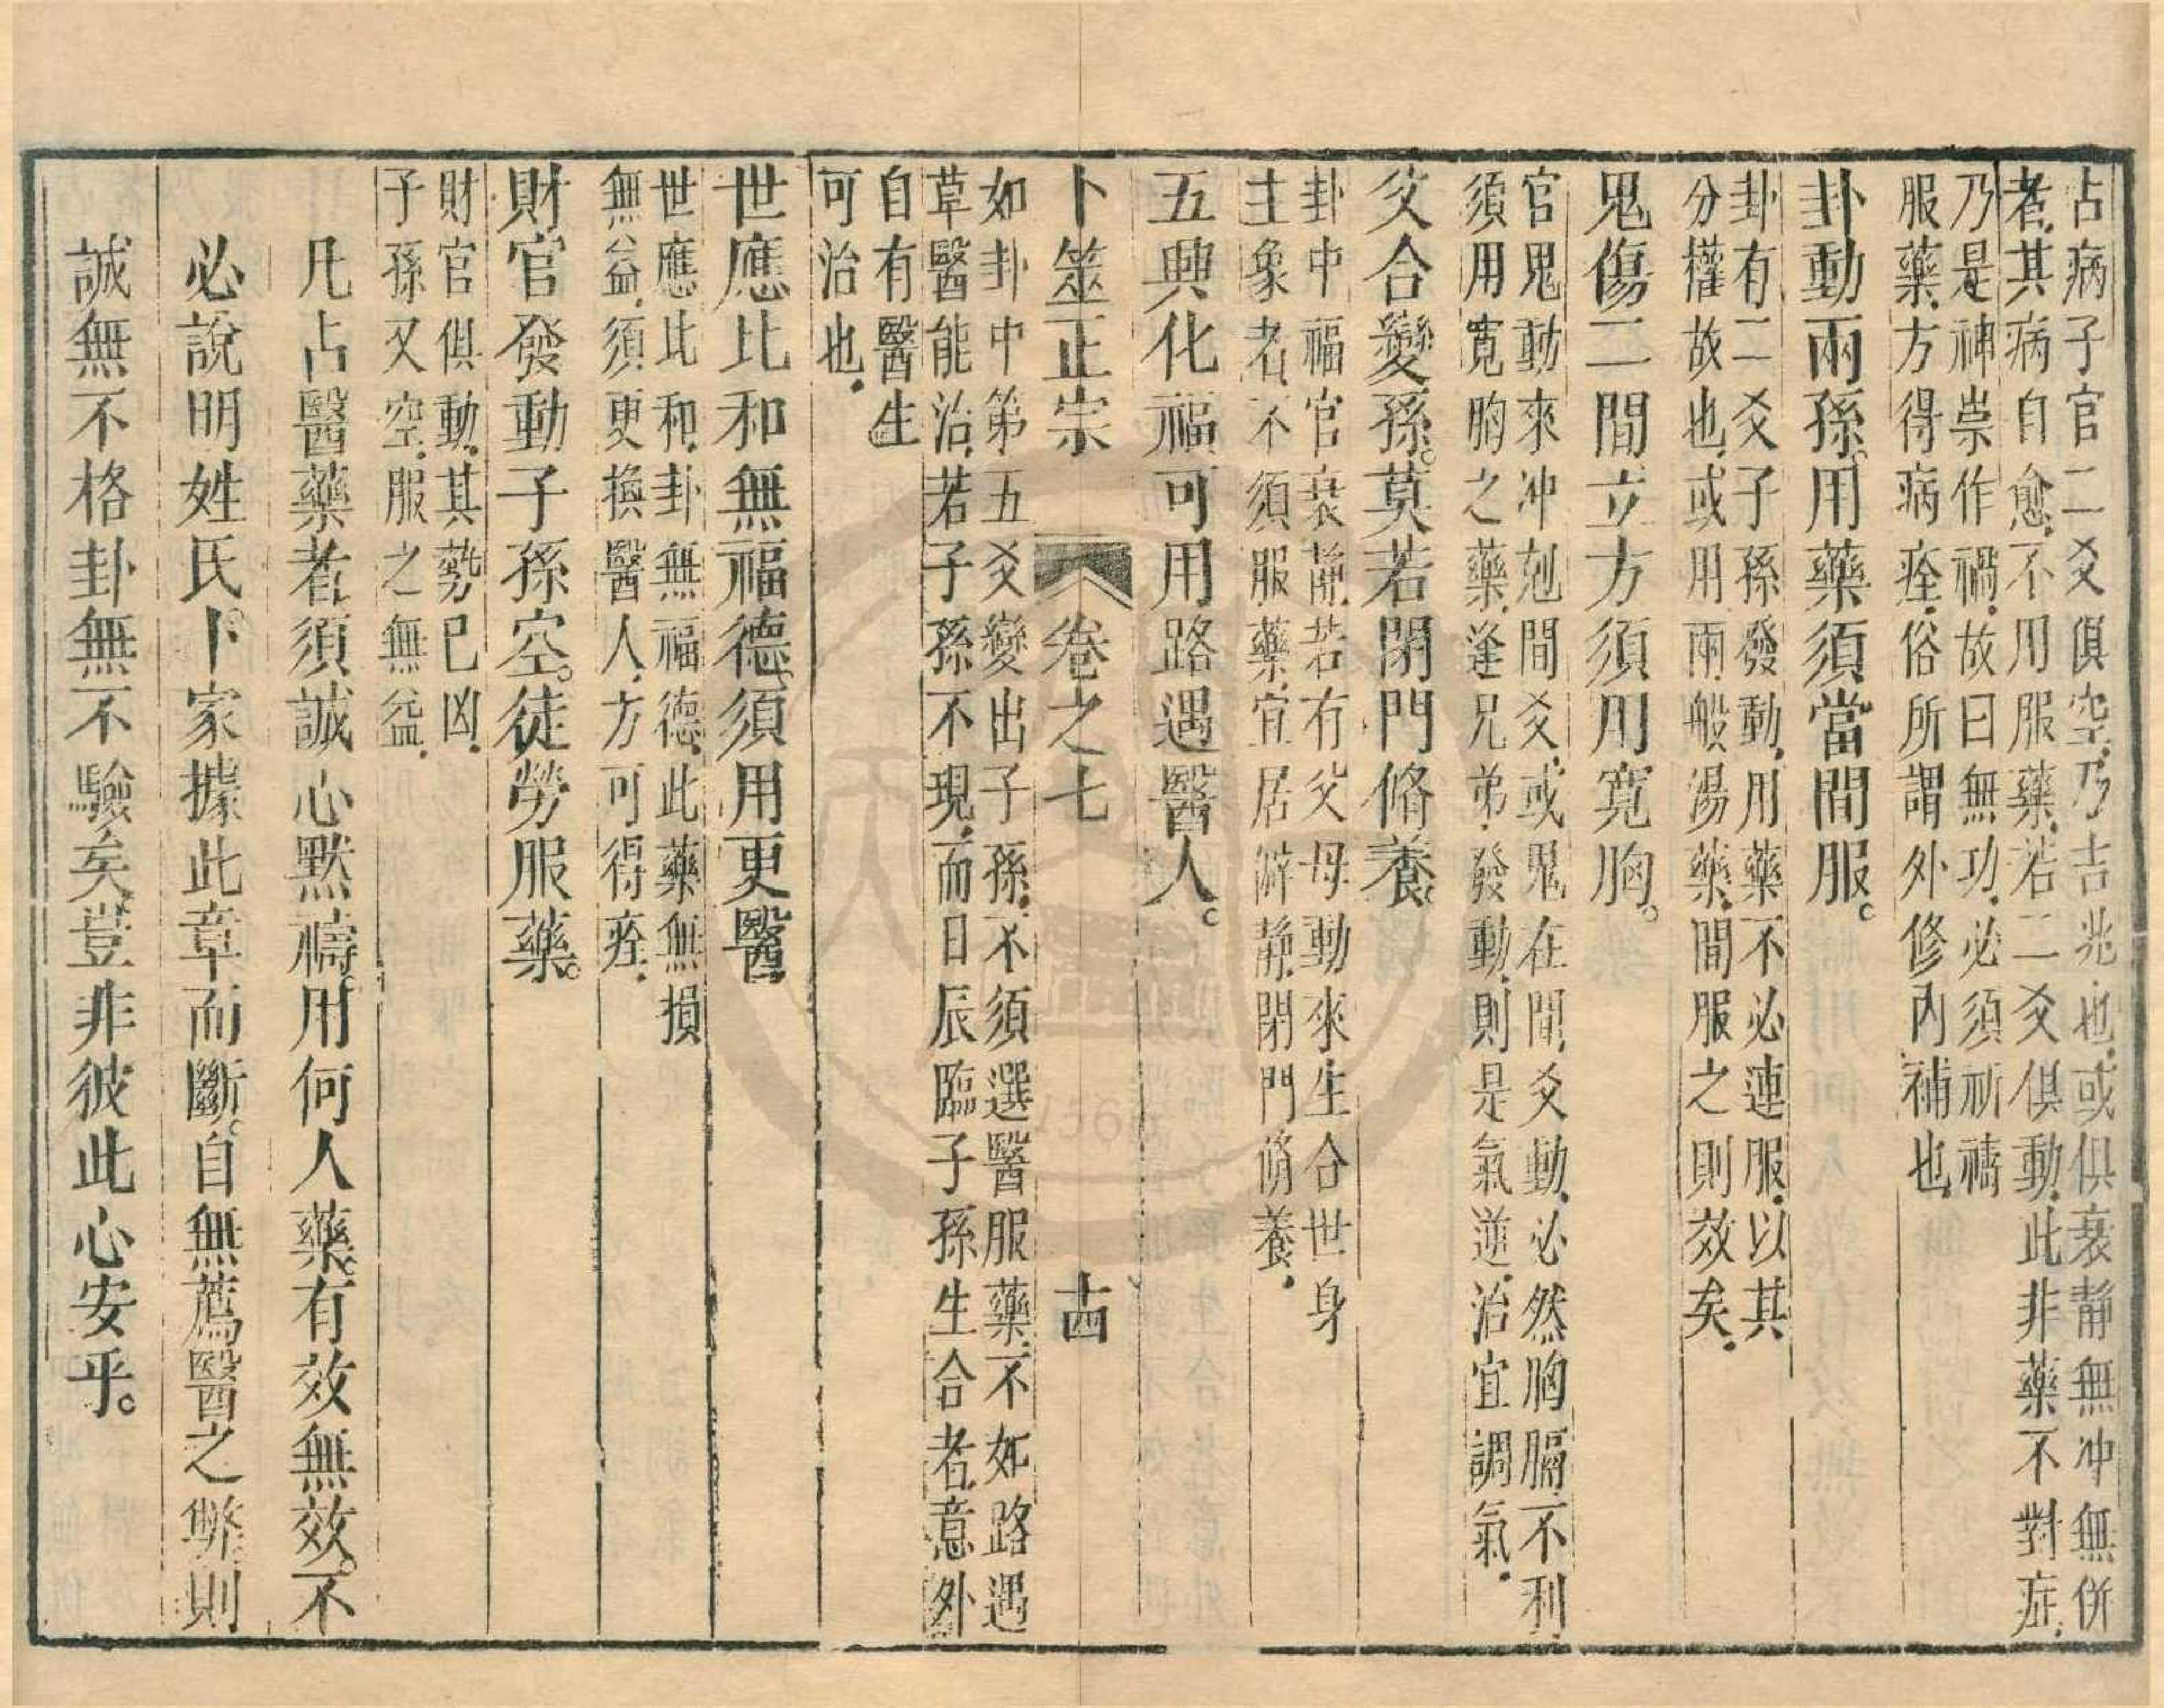 占病子官二爻俱空。乃吉兆也。或俱衰靜無冲無併
者。其病自愈。不用服藥。若二爻俱動。此非藥不對症。
乃是神祟作禍。故曰無功。必須祈禱
服藥。方得病痊。俗所謂外修內補也。
卦動兩孫。用藥須當間服。
卦有二爻子孫發動。用藥不必連服。以其
分權故也。或用兩般湯藥。間服之則效矣。
鬼傷二間立方須用寬胸。
官鬼動來冲剋間爻。或鬼在間爻動。必然胸膈不利。
須用寬胸之藥。逢兄弟發動。則是氣逆。治宜調氣。
父合變孫。莫若閉門脩養。
卦中福官衰靜。若有父母動來生合世身
主象者。不須服藥。宜居僻靜。閉門脩養。
五興化福可用路遇醫人。
卜筮正宗 卷之七 十四
如卦中第五爻變出子孫。不須選醫服藥。不如路遇
草醫能治。若子孫不現。而日辰臨子孫生合者。意外
自有醫生
可治也。
世應比和無福德。須用更醫
世應比和。卦無福德。此藥無損
無益。須更換醫人。方可得痊。
財官發動子孫空。徒勞服藥。
財官俱動。其勢已凶。
子孫又空。服之無益。
凡占醫藥者須誠心默禱。用何人藥。有效無效。不
必說明姓氏。卜家據此章而斷。自無薦醫之弊。則
誠無不格卦無不驗矣。豈非彼此心安乎。